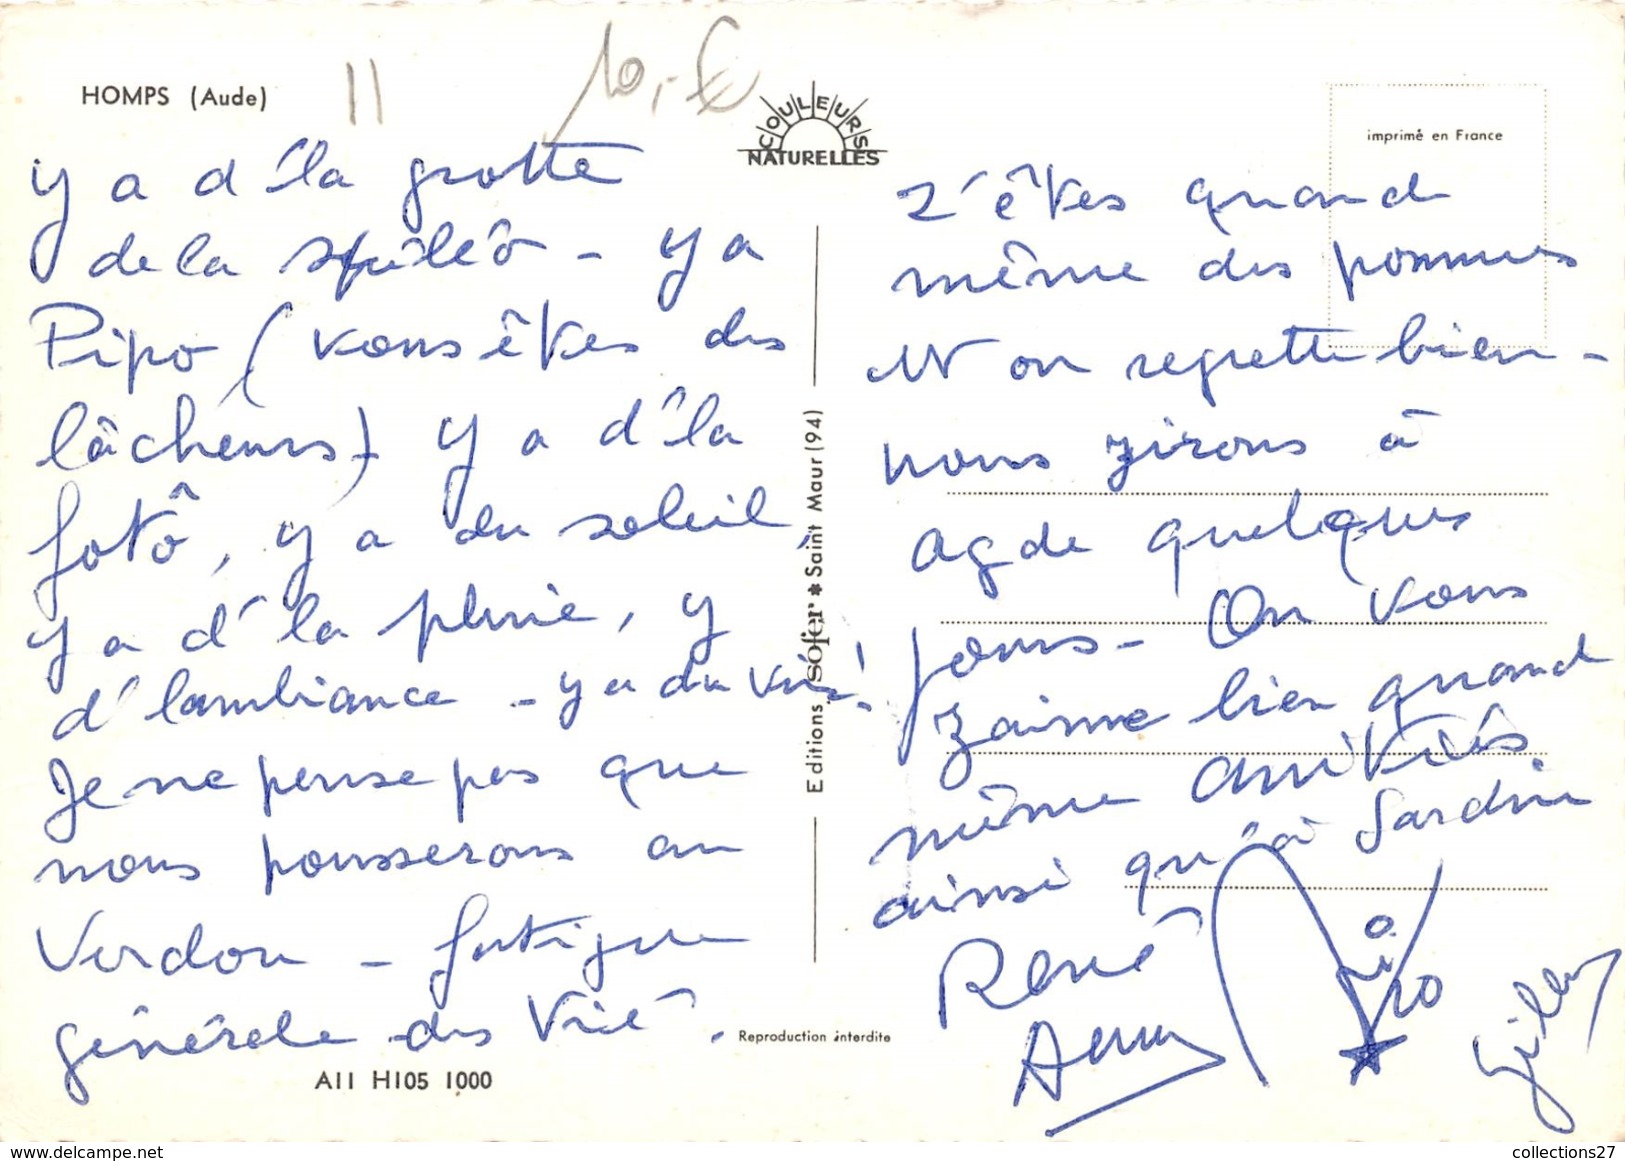 HOMPS (Aude)
11
10,-€
COULEURS
NATURELLES
imprimé en France
y a d'la grotte
de la spéléo - y a
Pipo (vous êtes des
lâcheurs) y a d'la
fotô, y a du soleil,
y a d'la pluie, y
d'lambiance - y a du vin!
Je ne pense pas que
nous pousserons au
Verdon - fatigue
générale des
z'êtes quand
même des pommes
et on regrette bien -
nous zirons à
Agde quelques
jours - On vous
zaime bien quand
même amitiés
ainsi qu'à Sardine
René
Pipo
Gilles
Editions sofer * Saint Maur (94)
Reproduction interdite
A11 H105 1000
collections27